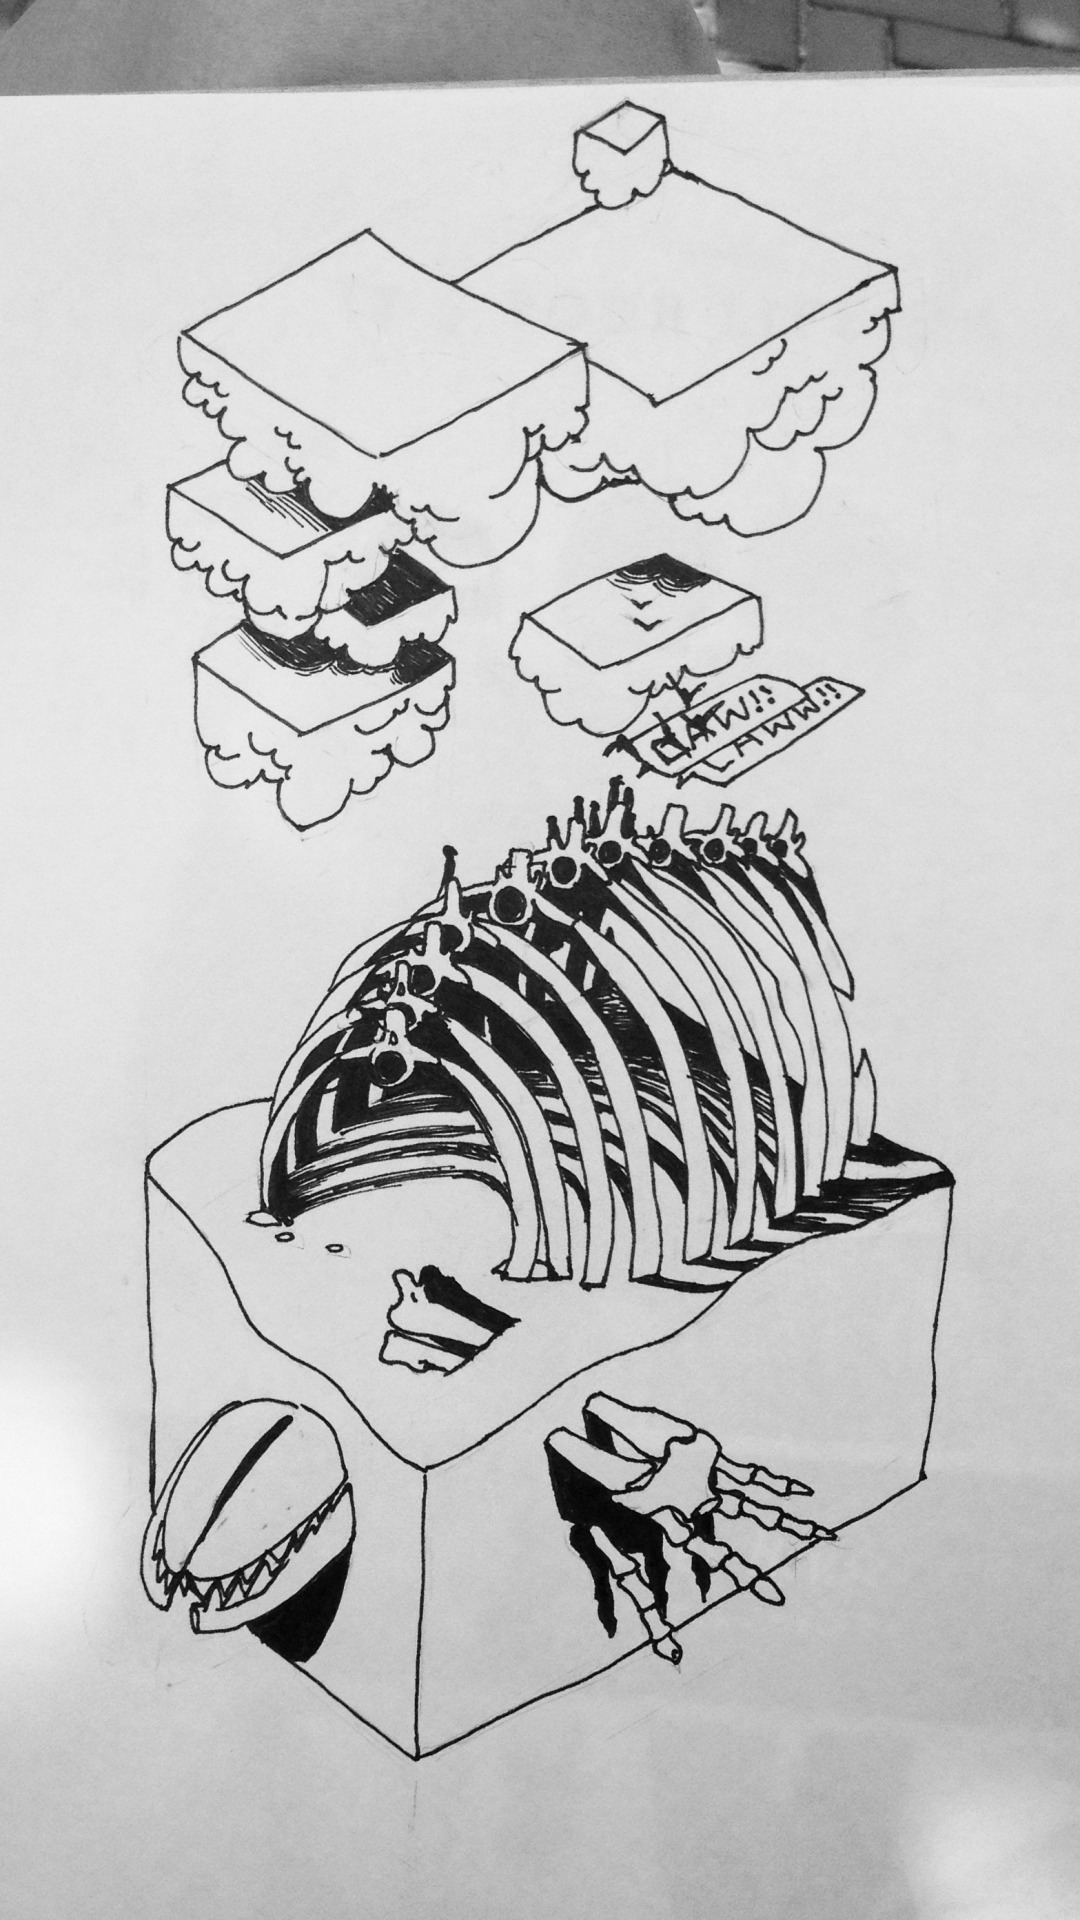 CAW!!
CAWW!!